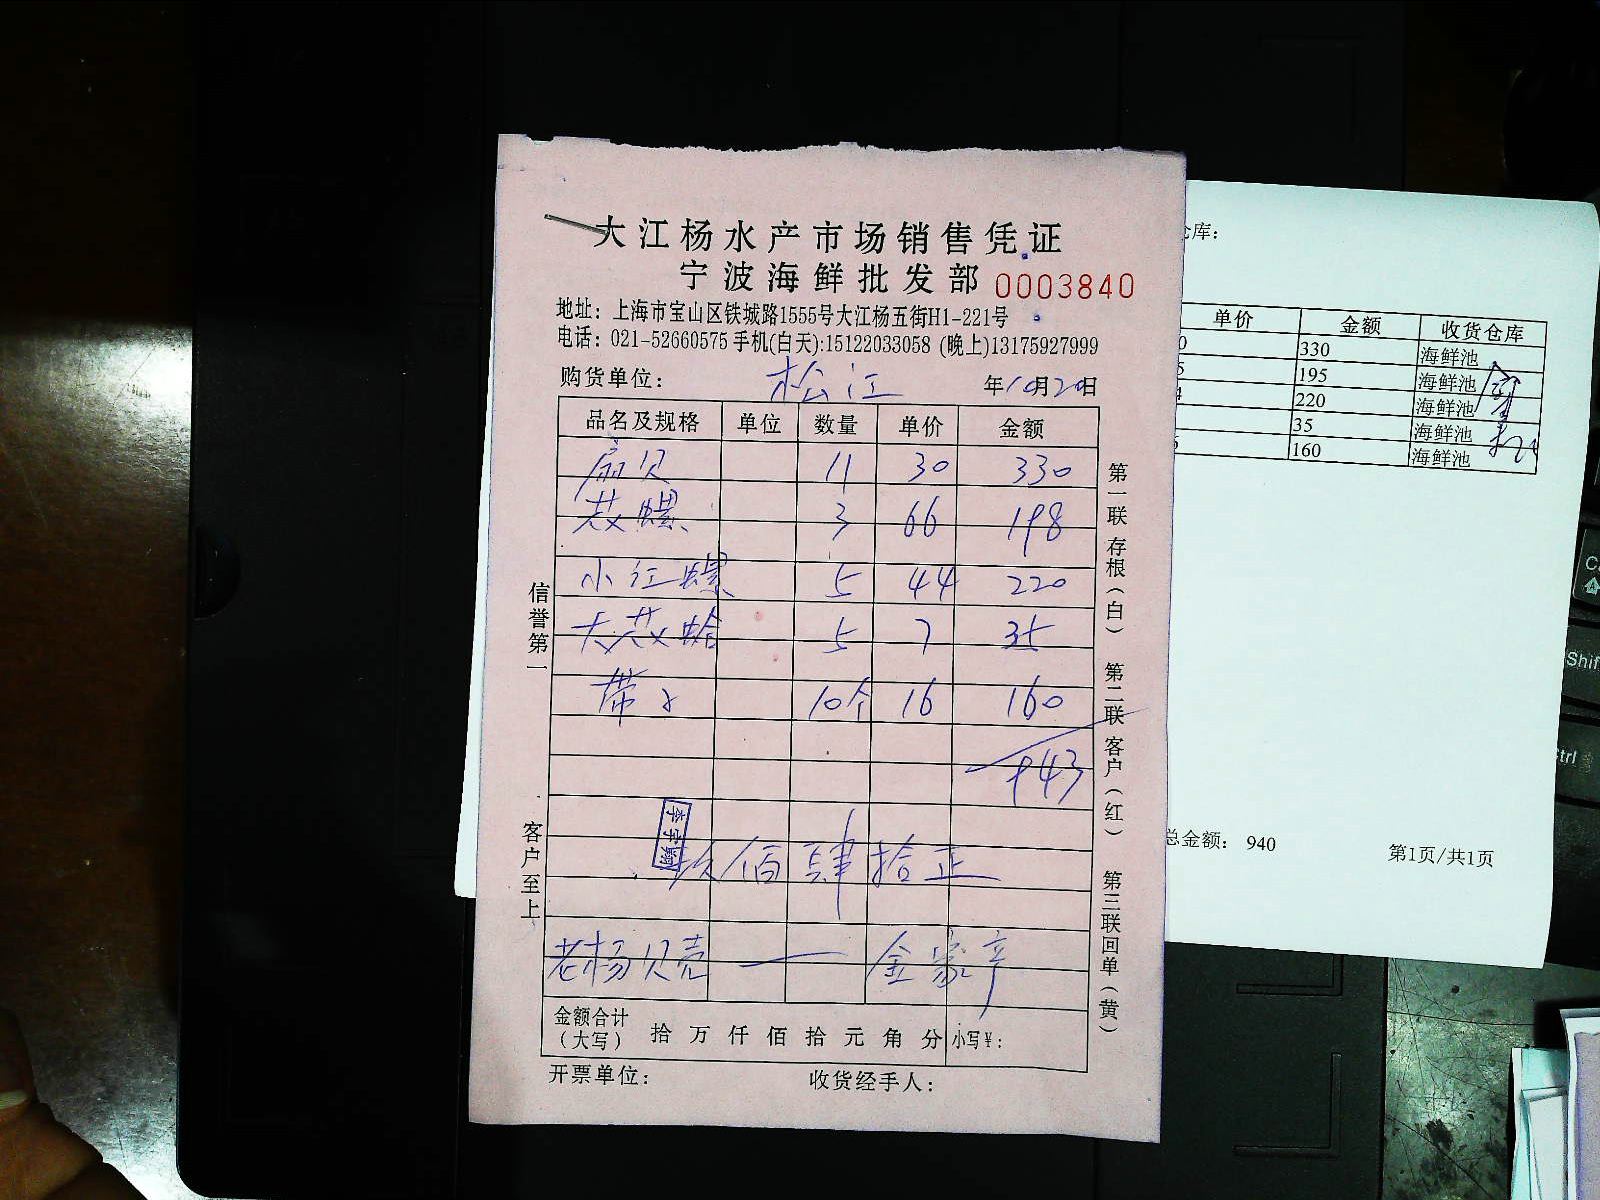 大江杨水产市场销售凭证
宁波海鲜批发部 0003840
地址：上海市宝山区铁城路1555号大江杨五街H1-221号
电话：021-52660575 手机(白天):15122033058 (晚上)13175927999
购货单位： 松江 年10月20日
品名及规格 单位 数量 单价 金额
扇贝 11 30 330
花螺 3 66 198
小江螺 5 44 220
大花蛤 5 7 35
带子 10个 16 160
943
李宇翔
玖佰肆拾正
老杨贝壳 — 金家辛
金额合计（大写） 拾 万 仟 佰 拾 元 角 分 小写￥：
开票单位： 收货经手人：
信誉第一 客户至上
第一联存根（白） 第二联客户（红） 第三联回单（黄）
仓库：
单价 金额 收货仓库
330 海鲜池
195 海鲜池
220 海鲜池
35 海鲜池
160 海鲜池
总金额： 940 第1页/共1页
Shif